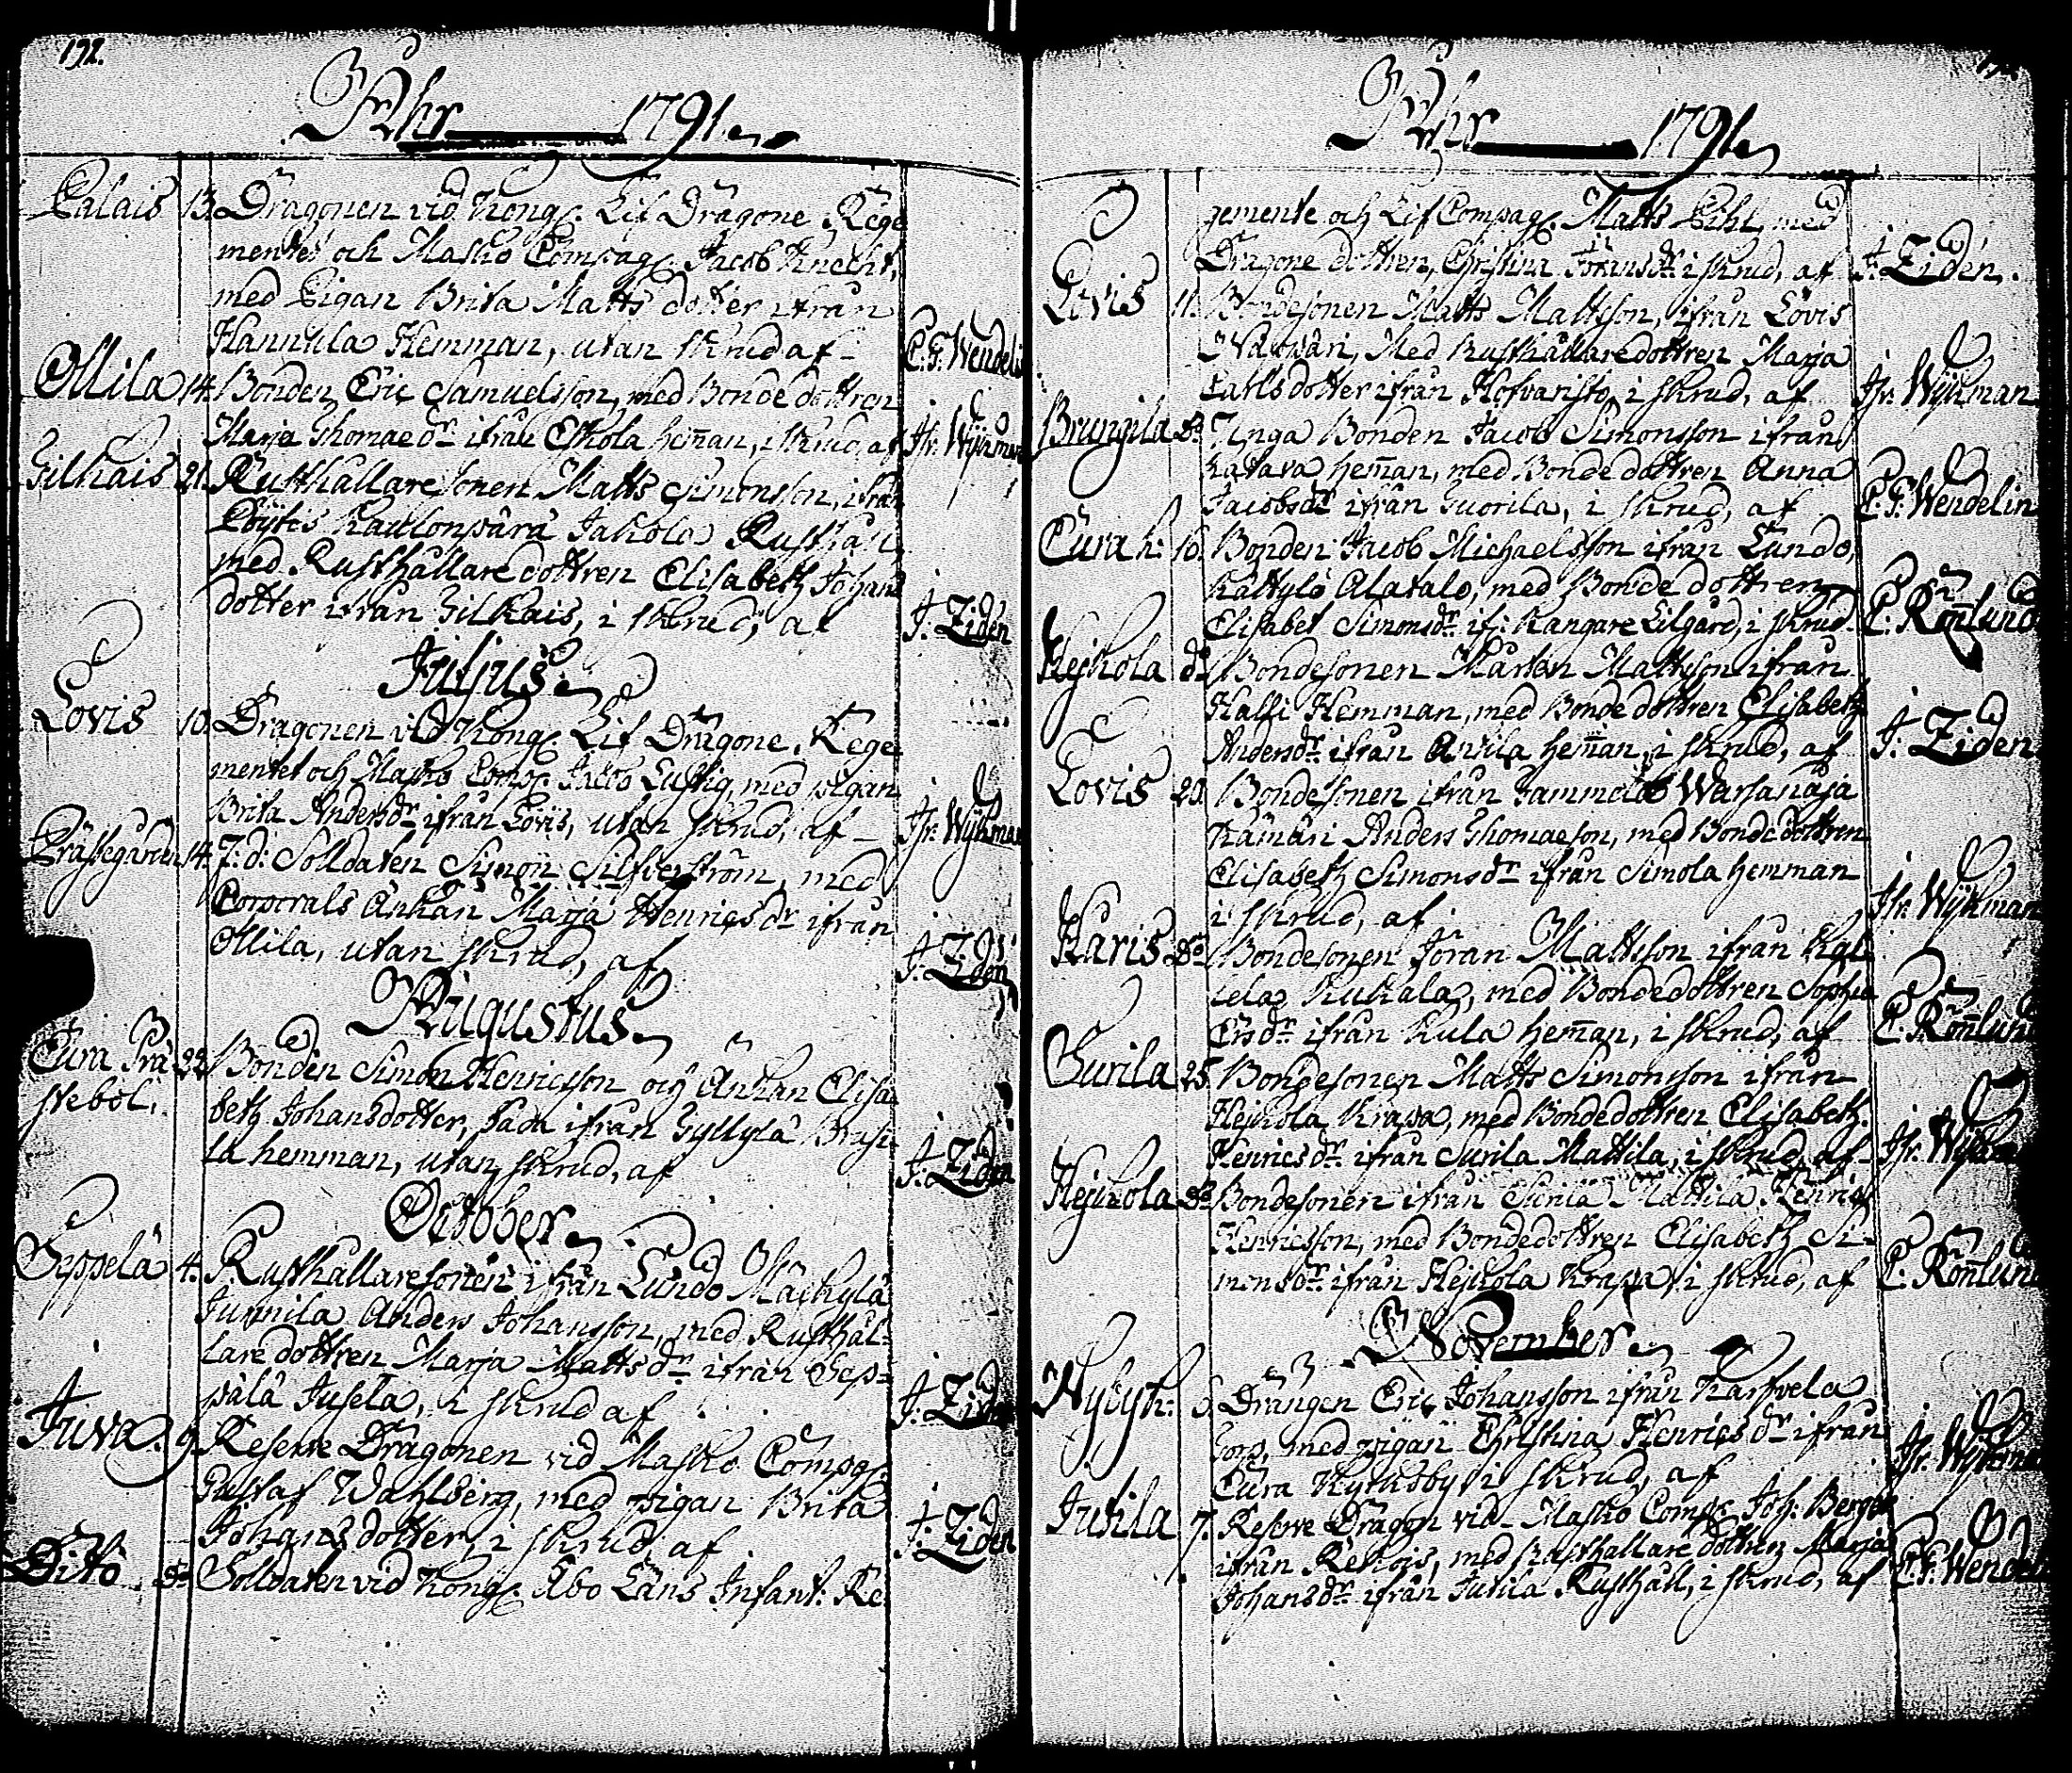 192.
Åhr 1791.
Palais 13. Dragonen vid Kongl. Lif Dragone Rege
mentet och Masko Compag. Jacob Knecht,
med Pigan Brita Matts dotter ifrån
Hannula Hemman, utan skrud af C. F. Wendelin
Ollila 14. Bonden Eric Samuelsson, med Bonde dottren
Marja Thomae dr ifrån Eskola hem̄an, i skrud, af Jsr. Wijkman
Gilkais 21. Rusthållare sonen Matts Simonsson, ifrån
Pöytis Kaulonpärä Jakola Rusthåll,
med Rusthållare dottren Elisabeth Johans
dotter ifrån Gilkais, i skrud, af J. Zidén
Julius.
Lovis 10. Dragonen vid Kongl. Lif Dragone Rege
mentet och Masko Comp. Jacob Lustig, med pigan
Brita Andersdr ifrån Lövis, utan skrud, af Jsr. Wijkman
Prästegården 14. F: d: Solldaten Simon Silfverström, med
Corporals Änkan Marja Henricsdr ifrån
Ollila, utan skrud, af J. Zidén
Augustus.
Cura Prä 22. Bonden Simon Henricsson och Änkan Elisa
stebol. beth Johansdotter, båda ifrån Gyllylä
la hemman, utan skrud, af J. Zidén
October.
Seppelä 4. Rusthållaresonen ifrån Lundo Mäckylä
Junnila Anders Johansson, med Rusthål-
lare dottren Marja Mattsdr ifrån Sep=
pälä Jusela, i skrud af J. Zidén
Juva. 9. Reserve Dragonen vid Masko Compag.
Gustaf Wahlberg, med pigan Brita
Johans dotter, i skrud, af J. Zidén
Dito do Solldaten vid Kongl. Åbo Läns Infant. Re
Åhr 1791.
gemente och Lif Compag. Matts Pihl, med
Dragone dottren, Christina Jöransdr i skrud, af J. Zidén.
Lovis 11. Bondesonen Matts Mattsson, ifrån Lövis
Med Rusthållaredottren Marja
Carlsdotter ifrån Hofvaristo, i skrud, af Jsr. Wijkman
Brungila do Unga Bonden Jacob Simonsson ifrån
Katava hem̄an, med Bonde dottren Anna
Jacobsdr ifrån Tuorila, i skrud, af C. F. Wendelin
Cura k: 16. Bonden Jacob Michaelsson ifrån Lundo,
Kättylö Alatalo, med Bonde dottren
Elisabet Simonsdr if: Kangare Lilgård, i skrud C. Rön̄lund
Hejkola do Bondesonen Mårten Mattsson ifrån
Halfi Hemman, med Bonde dottren Elisabeth
Andersdr ifrån Anvila hem̄an, i skrud, af J. Ziden
Lovis 20. Bondesonen ifrån Sammalo Warsanoja
Kämäri Anders Thomaeson, med Bonde dottren
Elisabeth Simonsdr ifrån Simola hemman
i skrud, af Jsr. Wijkman
Karis do Bondesonen Jöran Mattsson ifrån Kal
lela Kukala, med Bondedottren Sophia
Ersdr ifrån Kula hem̄an, i skrud, af C. Rön̄lund
Surila 25. Bondesonen Matts Simonsson ifrån
Hejkola Krapa, med Bondedottren Elisabeth
Henricsdr ifrån Surila Mattila, i skrud, af Jsr. Wijkman
Hejkola do Bondesonen ifrån Surila Mattila Henric
Henricsson, med Bondedottren Elisabeth Si-
monsdr ifrån Hejkola Krapa, i skrud, af C. Rön̄lund
November.
Nybyk: 6. Drängen Eric Johansson ifrån Karfvela
med pigan Christina Henricsdr ifrån
Cura Kyrkoby i skrud, af Jsr. Wijkman
Jutila 7. Reserve Dragon vid Masko Comp. Joh: Berger
ifrån Rekois, med Rusthållare dottren Marja
Johansdr ifrån Jutila Rusthåll, i skrud, af C. F. Wendelin